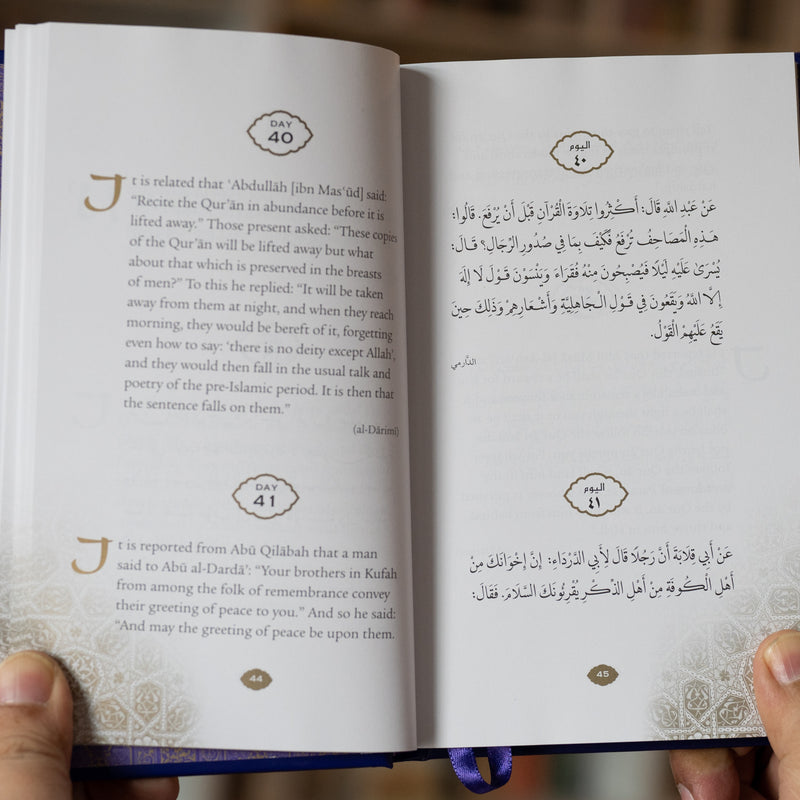 DAY
40
It is related that ʿAbdullāh [ibn Masʿūd] said:
“Recite the Qurʾān in abundance before it is
lifted away.” Those present asked: “These copies
of the Qurʾān will be lifted away but what
about that which is preserved in the breasts
of men?” To this he replied: “It will be taken
away from them at night, and when they reach
morning, they would be bereft of it, forgetting
even how to say: ‘there is no deity except Allah’,
and they would then fall in the usual talk and
poetry of the pre-Islamic period. It is then that
the sentence falls on them.”
(al-Dārimī)
DAY
41
It is reported from Abū Qilābah that a man
said to Abū al-Dardāʾ: “Your brothers in Kufah
from among the folk of remembrance convey
their greeting of peace to you.” And so he said:
“And may the greeting of peace be upon them.
44
اليوم
٤٠
عَنْ عَبْدِ اللَّهِ قَالَ: أَكْثِرُوا تِلَاوَةَ الْقُرْآنِ قَبْلَ أَنْ يُرْفَعَ. قَالُوا:
هَذِهِ الْمَصَاحِفُ تُرْفَعُ فَكَيْفَ بِمَا فِي صُدُورِ الرِّجَالِ؟ قَالَ:
يُسْرَىٰ عَلَيْهِ لَيْلًا فَيُصْبِحُونَ مِنْهُ فُقَرَاءَ وَيَنْسَوْنَ قَوْلَ لَا إِلَهَ
إِلَّا اللَّهُ وَيَقَعُونَ فِي قَوْلِ الْجَاهِلِيَّةِ وَأَشْعَارِهِمْ وَذَلِكَ حِينَ
يَقَعُ عَلَيْهِمُ الْقَوْلُ.
الدَّارمي
اليوم
٤١
عَنْ أَبِي قِلَابَةَ أَنَّ رَجُلًا قَالَ لِأَبِي الدَّرْدَاءِ: إِنَّ إِخْوَانَكَ مِنْ
أَهْلِ الْكُوفَةِ مِنْ أَهْلِ الذِّكْرِ يُقْرِئُونَكَ السَّلَامَ. فَقَالَ:
45